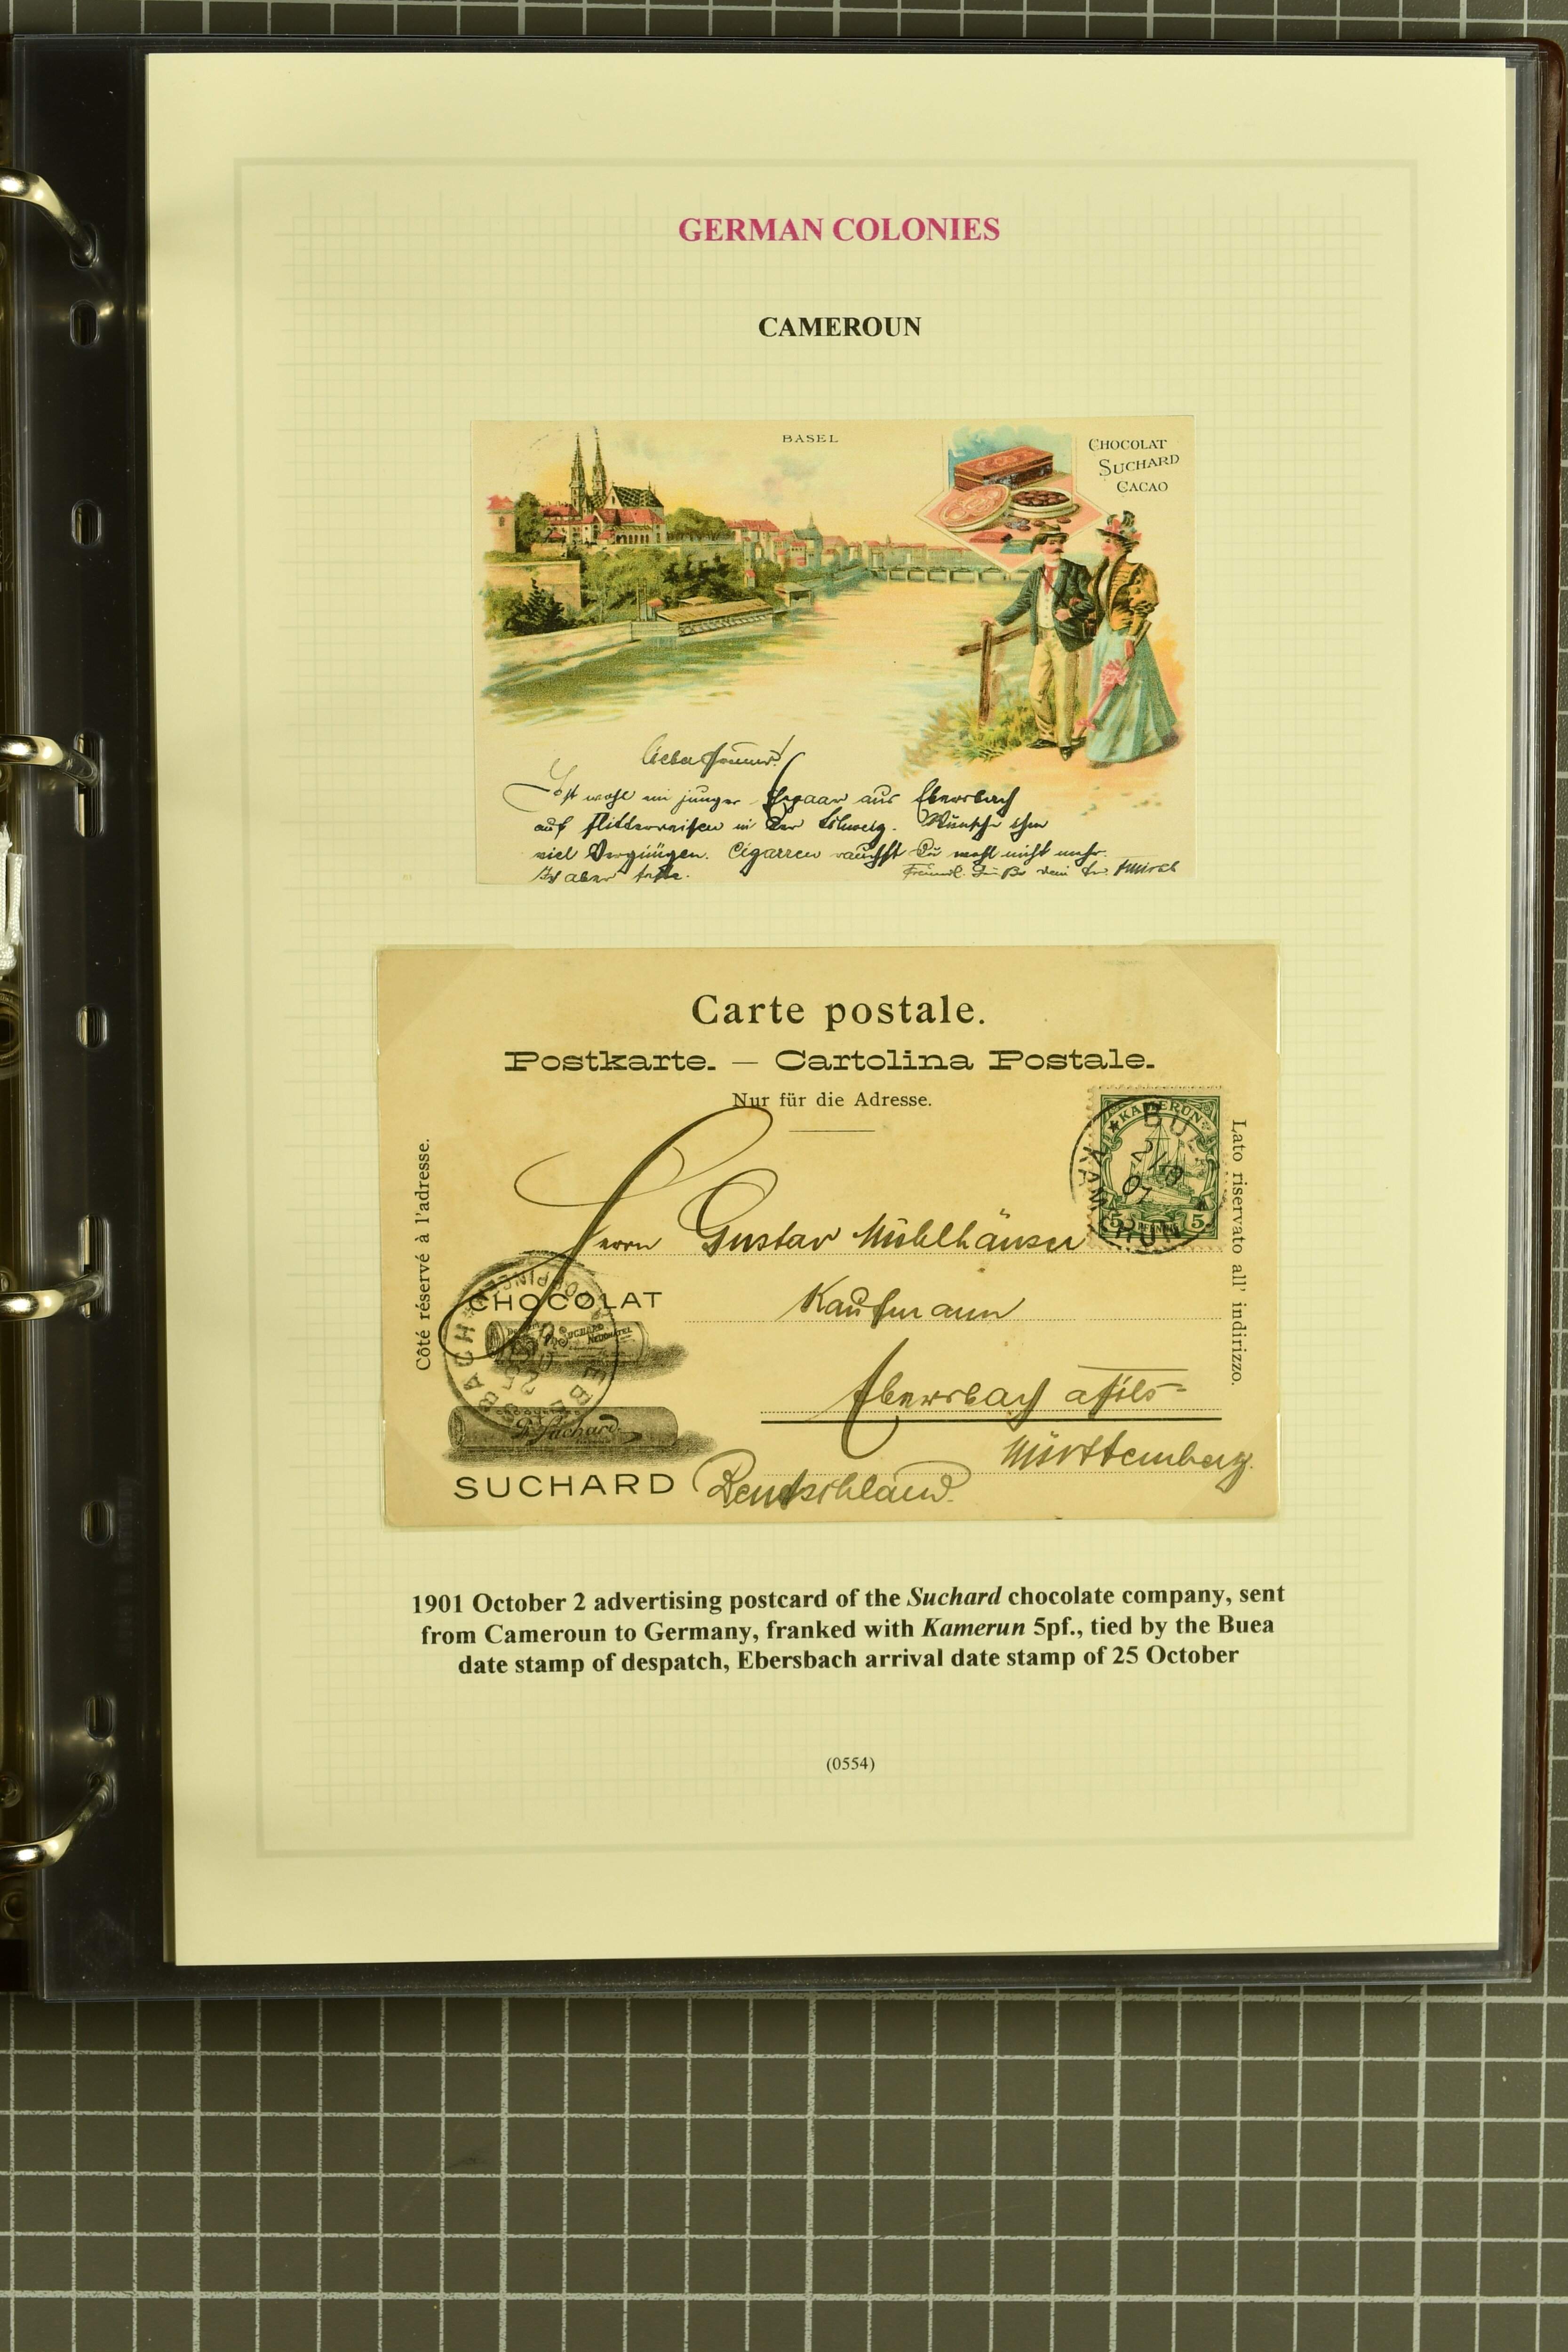 GERMAN COLONIES
CAMEROUN
BASEL
CHOCOLAT
SUCHARD
CACAO
Ist wohl ein junges Ehepaar aus Ebersbach
auf Flitterreisen in der Schweiz. Wünsche ihm
viel Vergnügen. Cigarren rauchst Du wohl nicht mehr.
Carte postale.
Postkarte. — Cartolina Postale.
Nur für die Adresse.
Côté réservé à l'adresse.
Lato riservato all' indirizzo.
KAMERUN
5 PFENNIG 5
BUEA
2/10
01
KAMERUN
Herrn Gustav Mühlhäuser
Kaufmann
Ebersbach a/Fils
Württemberg.
Deutschland.
CHOCOLAT
Ph. Suchard
SUCHARD
EBERSBACH
25
1901 October 2 advertising postcard of the Suchard chocolate company, sent
from Cameroun to Germany, franked with Kamerun 5pf., tied by the Buea
date stamp of despatch, Ebersbach arrival date stamp of 25 October
(0554)